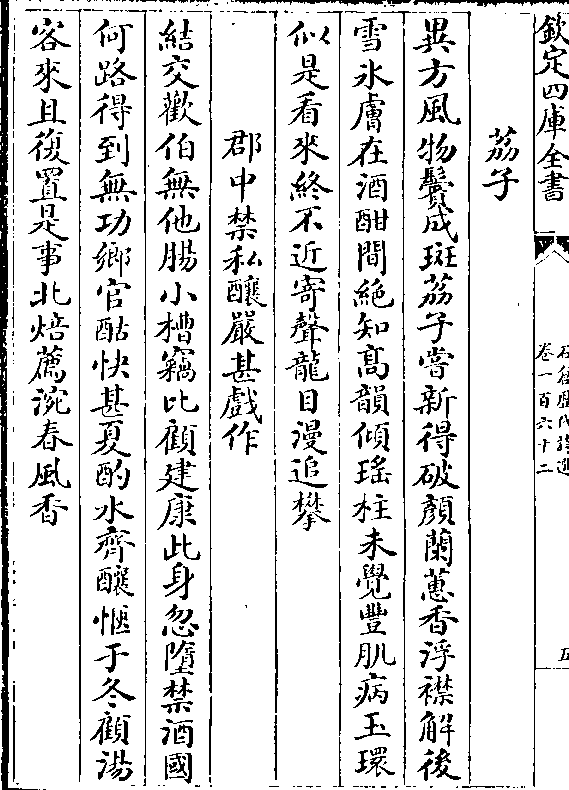 欽定四庫全書
卷一百六十二
五
荔子
異方風物鬢成斑荔子嘗新得破顏蘭蕙香浮襟解後
雪氷膚在酒酣間絶知髙韻傾瑤柱未覺豐肌病玉環
似是看來終不近寄聲龍目漫追攀
郡中禁私釀嚴甚戲作
結交歡伯無他腸小槽竊比顧建康此身忽墮禁酒國
何路得到無功鄉官酤快甚夏酌水齊釀愜于冬顧湯
客來且復置是事北焙薦涴春風香